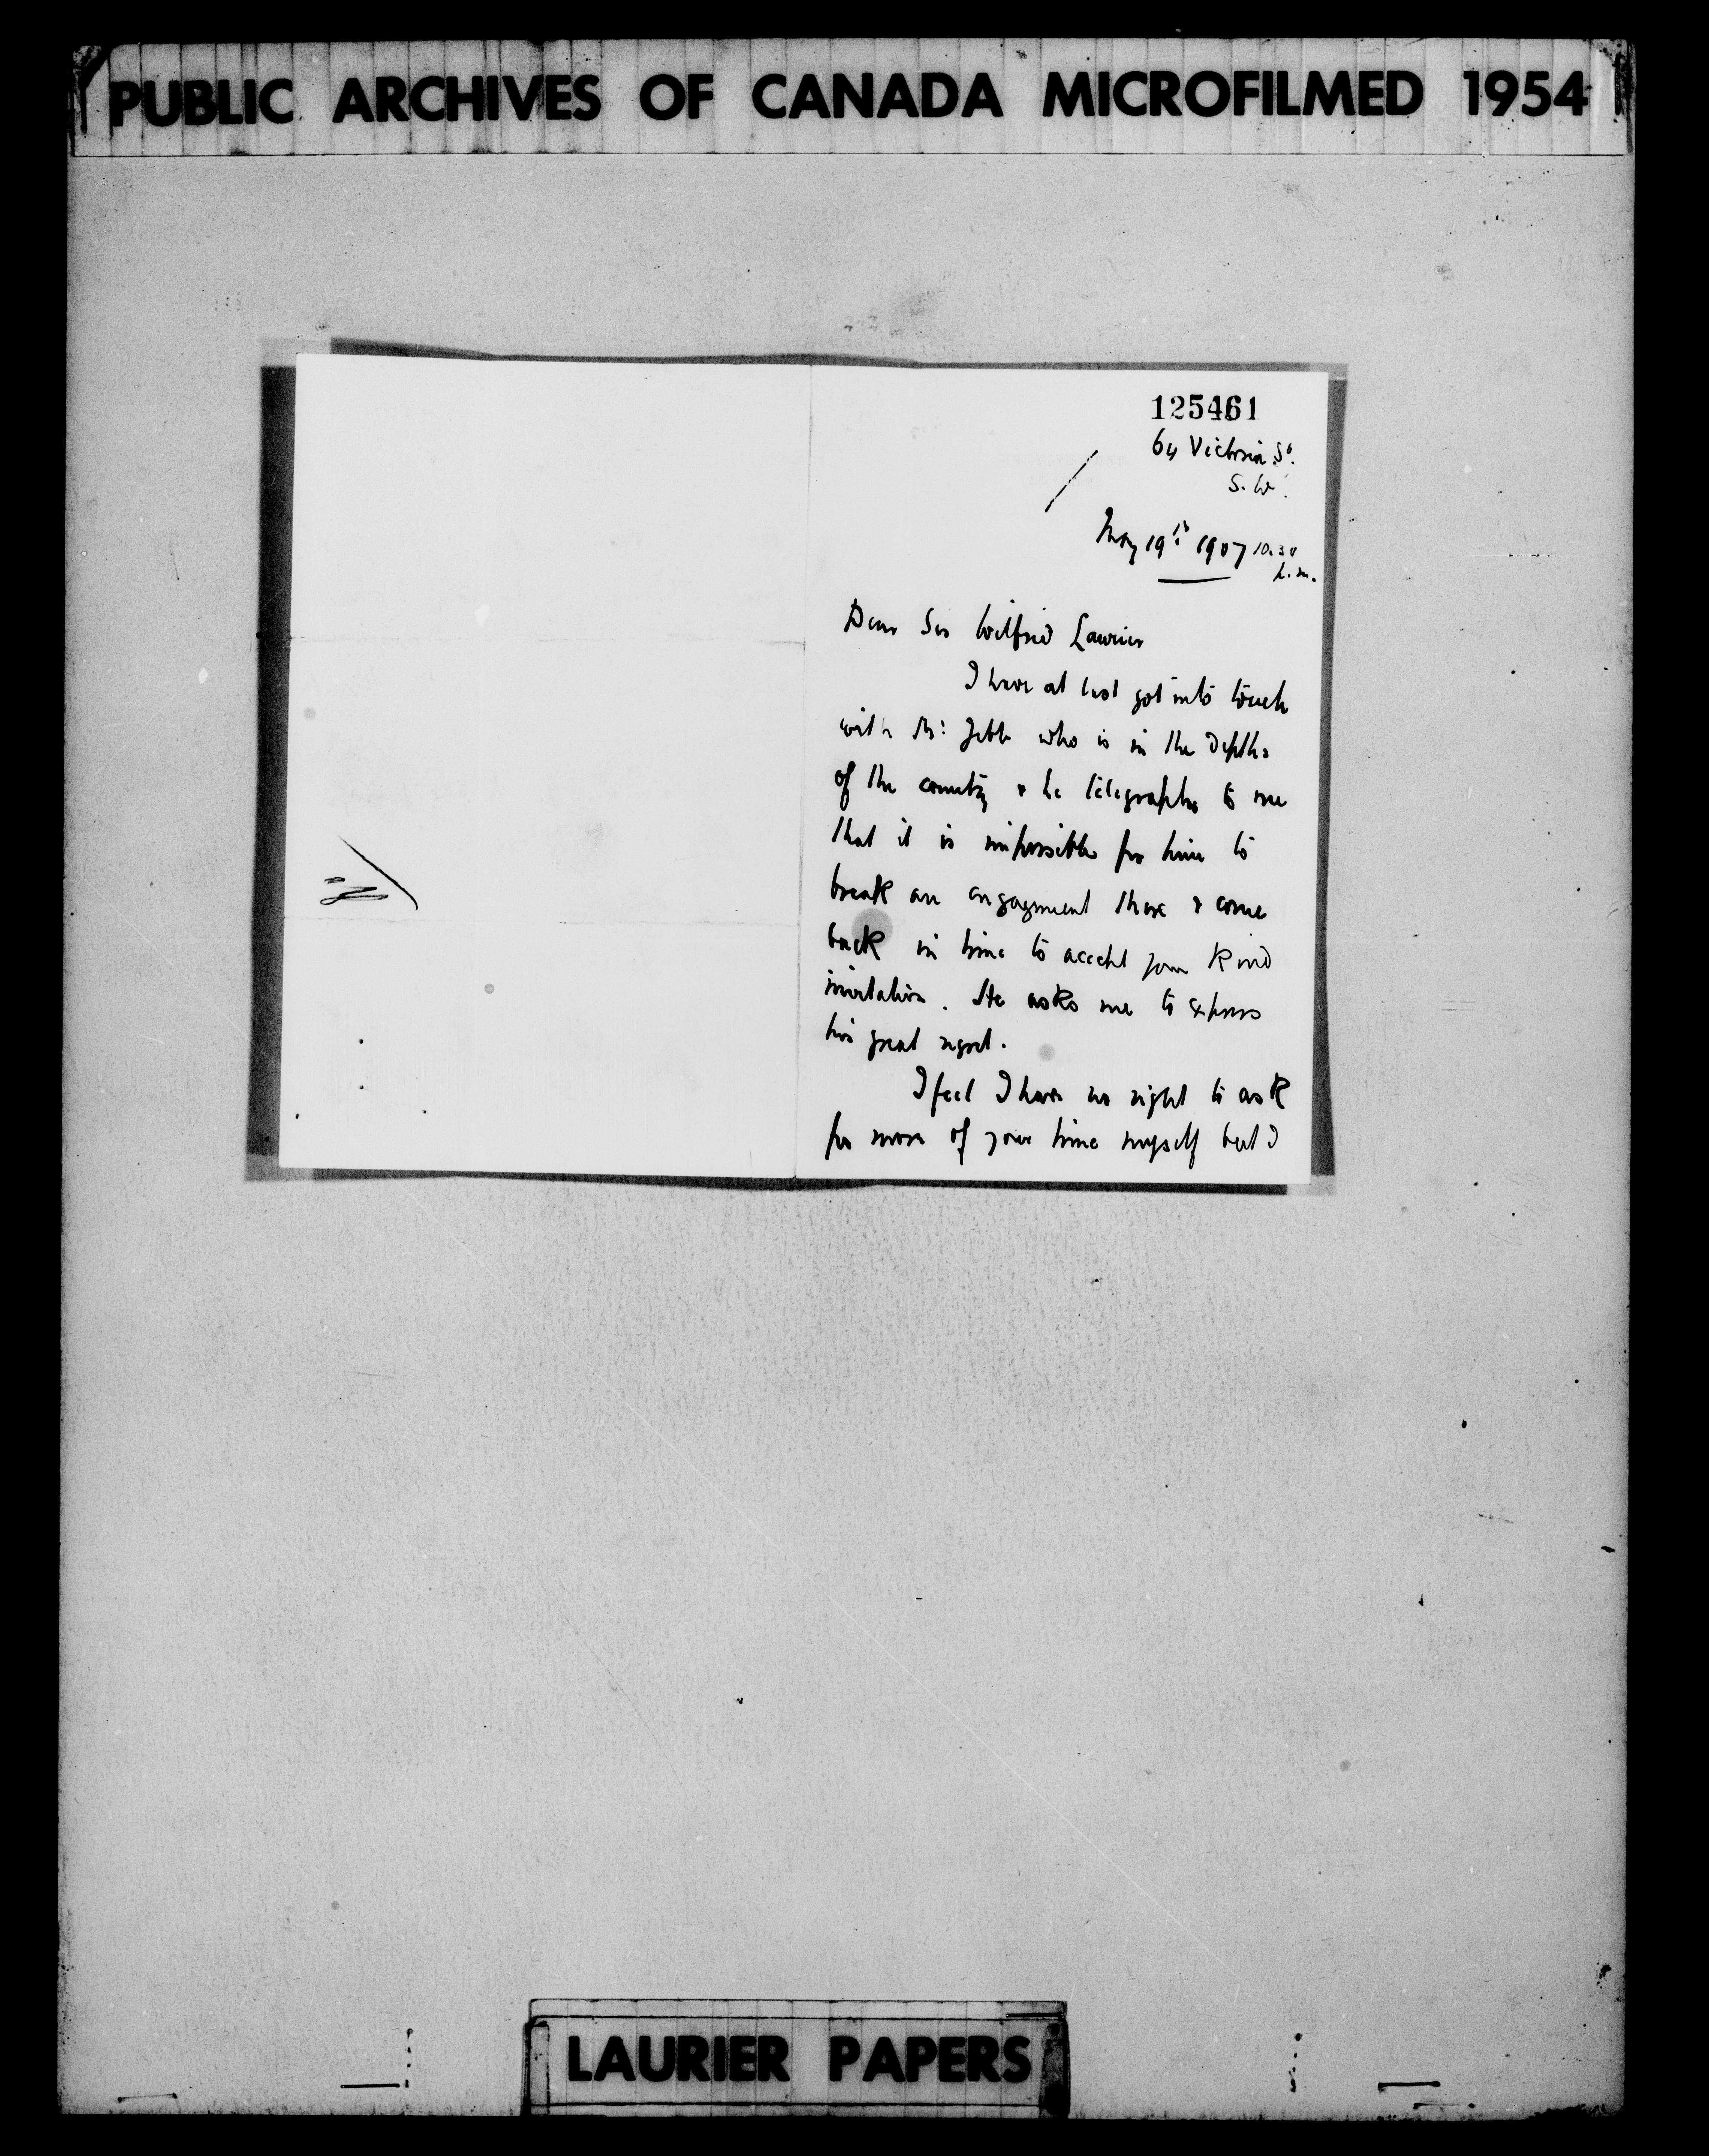 PUBLIC ARCHIVES OF CANADA MICROFILMED 1954
125461
64 Victoria St.
S.W.
May 19th 1907 10.30
p.m.
Dear Sir Wilfrid Laurier
I have at last got into touch
with Mr. Jebb who is in the depths
of the country & he telegraphs to me
that it is impossible for him to
break an engagement there & come
back in time to accept your kind
invitation. He asks me to express
his great regret.
I feel I have no right to ask
for more of your time myself but I
LAURIER PAPERS